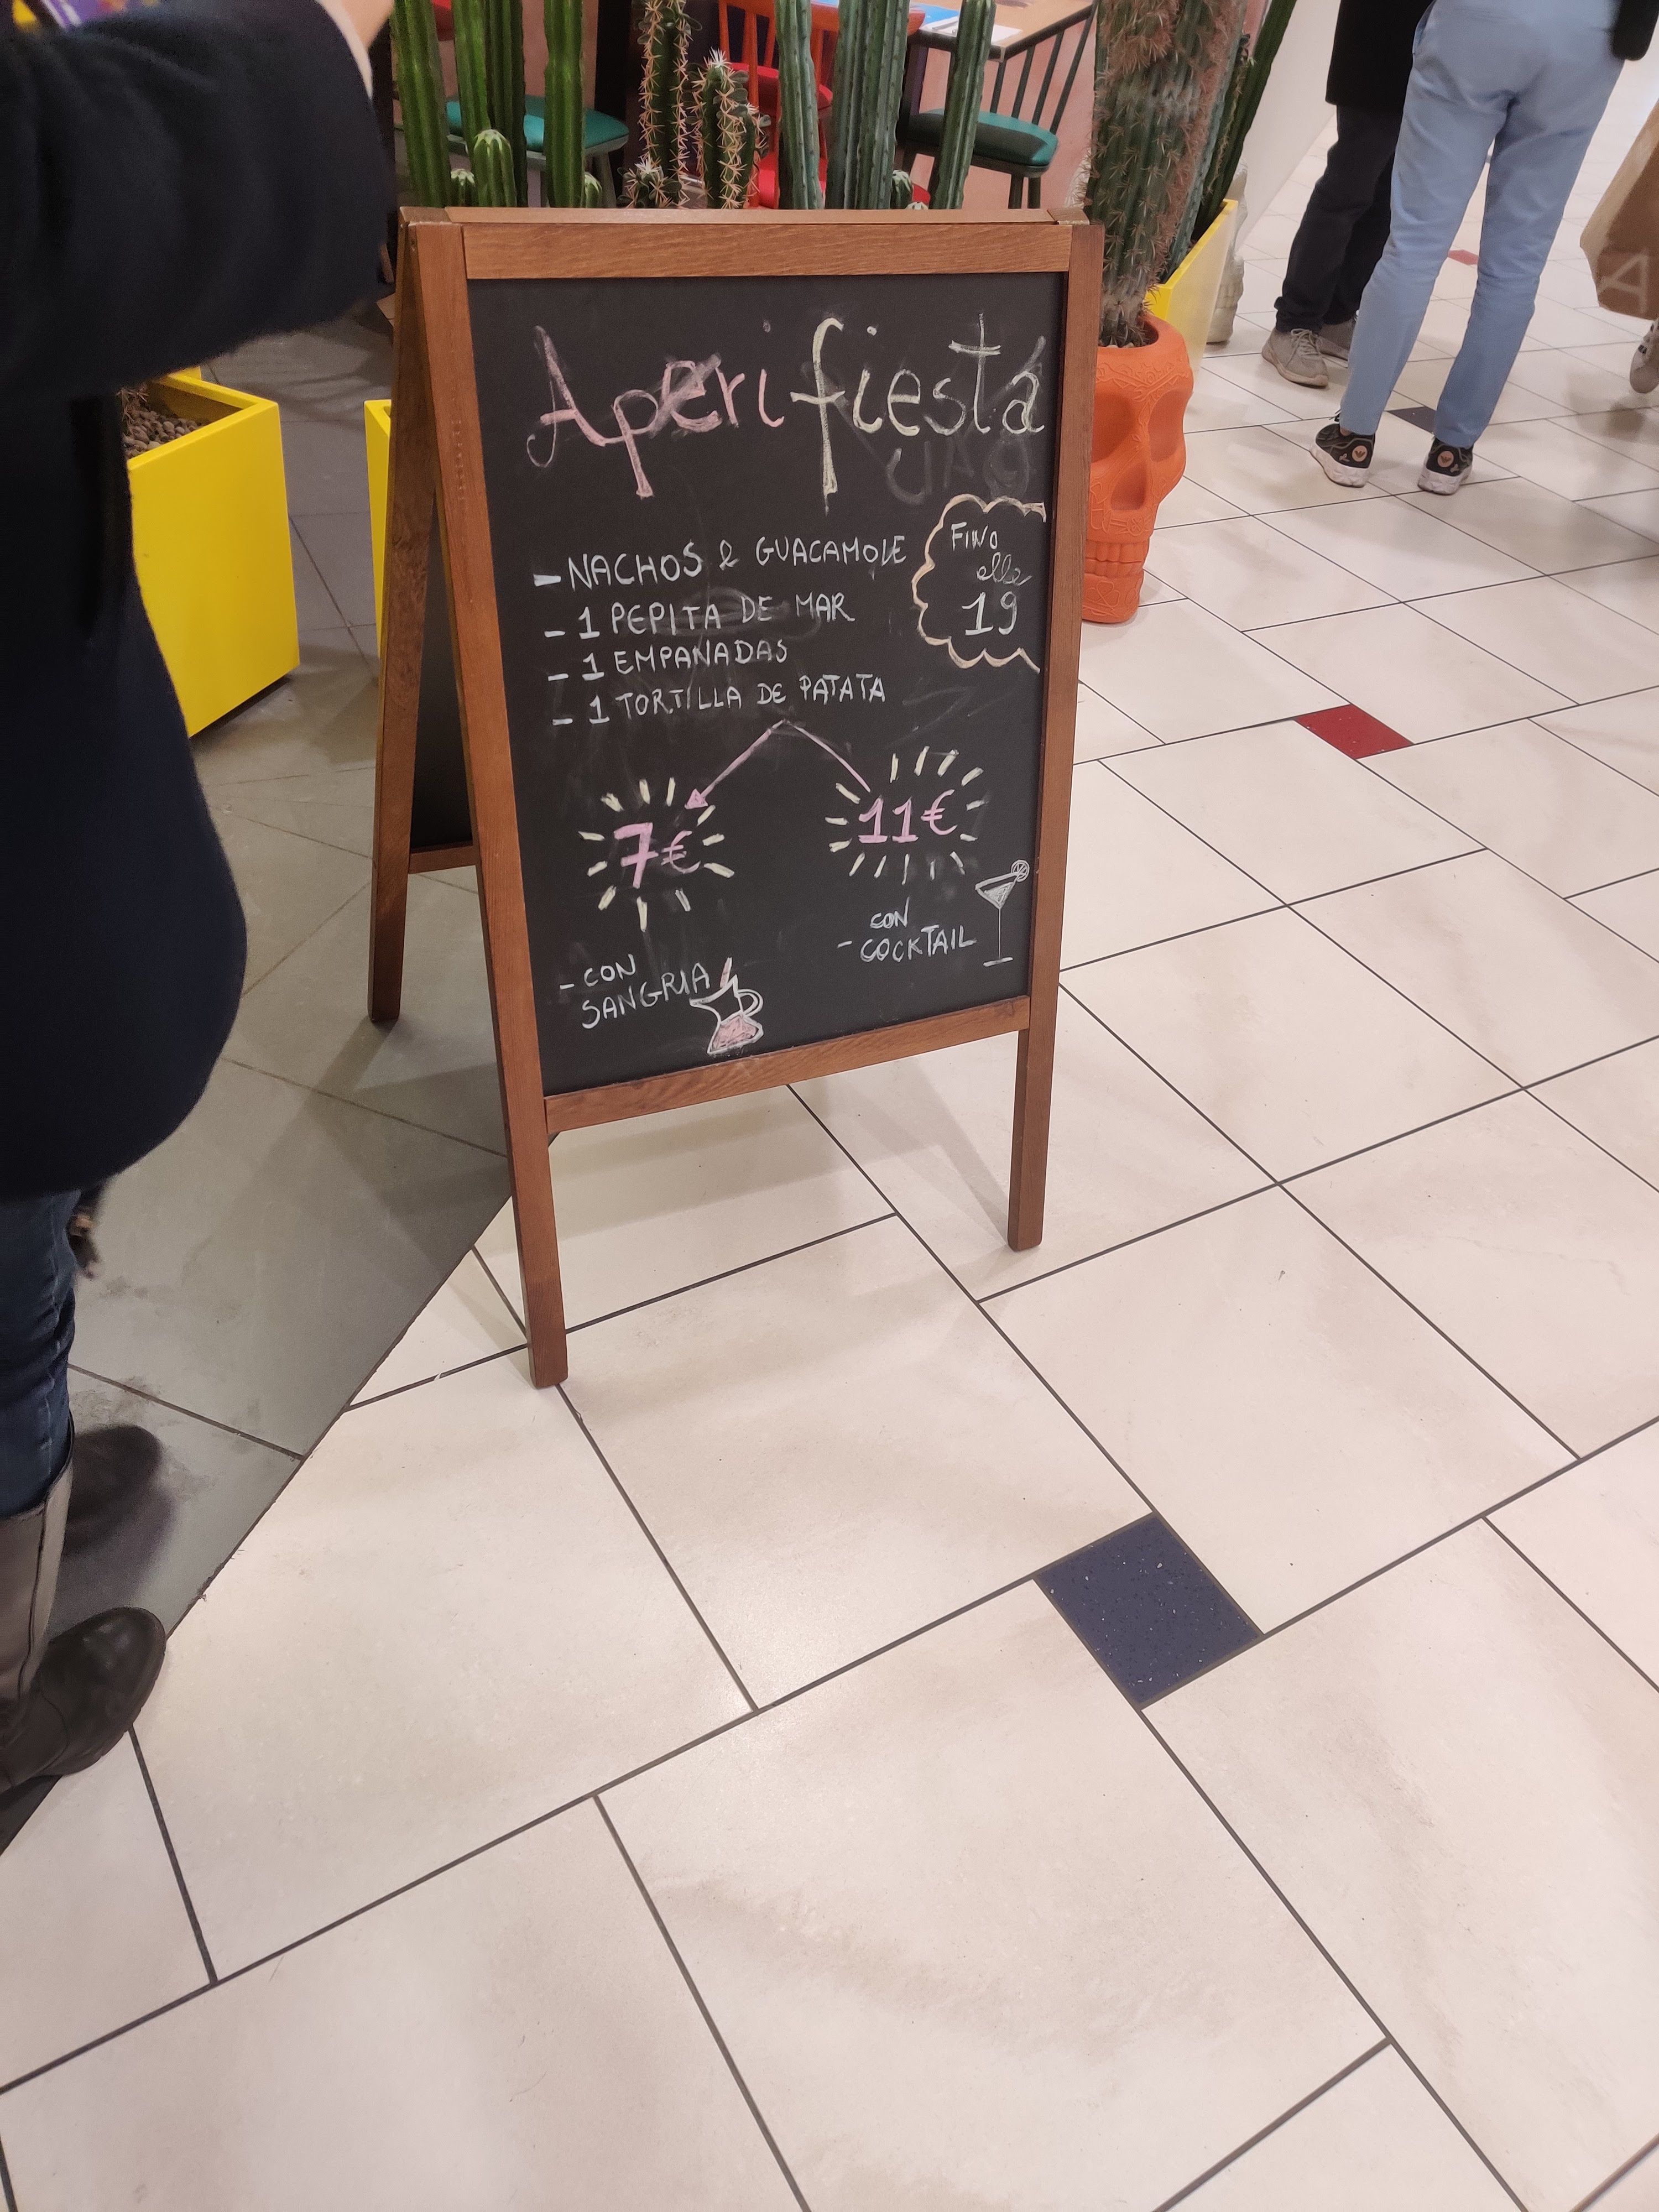 Aperifiesta
- NACHOS & GUACAMOLE
- 1 PEPITA DE MAR
- 1 EMPANADAS
- 1 TORTILLA DE PATATA
FINO
alle
19
7€
11€
- CON
SANGRIA
CON
- COCKTAIL